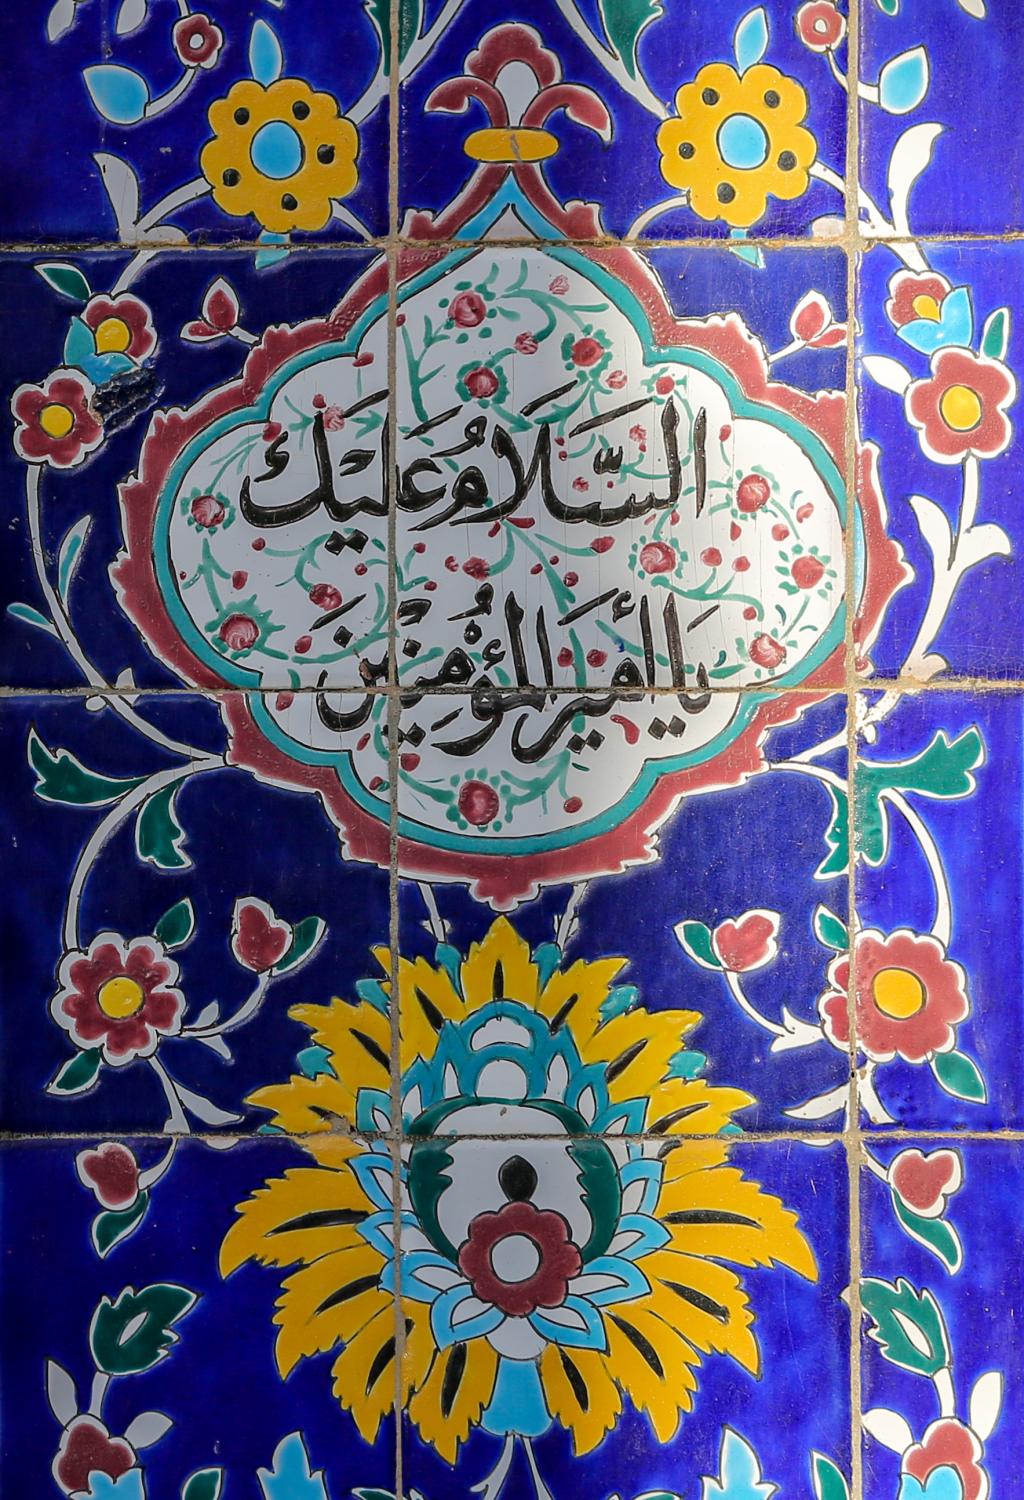 السَّلَامُ عَلَيْكَ
يَا أَمِيرَ الْمُؤْمِنِينَ